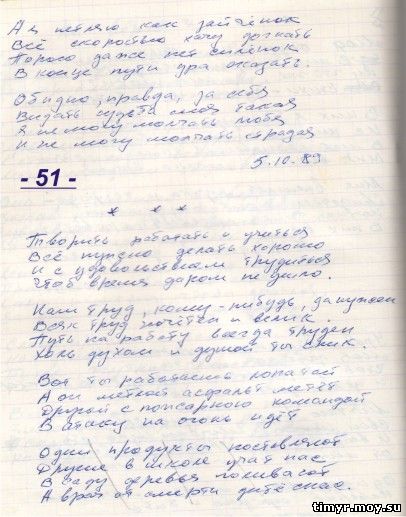 А я петляю как зайчёнок
Всё скоростью хочу догнать
Порого даже нет силёнок
В конце пути ура сказать.
Обидно, правда, за себя
Видать судьба моя такая
Я не могу молчать любя
И не могу молчать страдая
5.10.89
- 51 -
* * *
Творить работать и учиться
Всё нужно делать хорошо
И с удовольствием трудиться
Чтоб время даром не ушло.
Наш труд, кому-нибудь, да нужен
Всяк труд почётен и велик.
Путь на работу всегда труден
Коль духом и душой ты сник.
Вот ты работаешь лопатой
А он метлой асфальт метёт
Другой с пожарною командой
В атаку на огонь идёт
Одни продукты поставляют
Другие в школе учат нас
В саду деревья поливают
А врач от смерти дитё спас.
timyr.moy.su